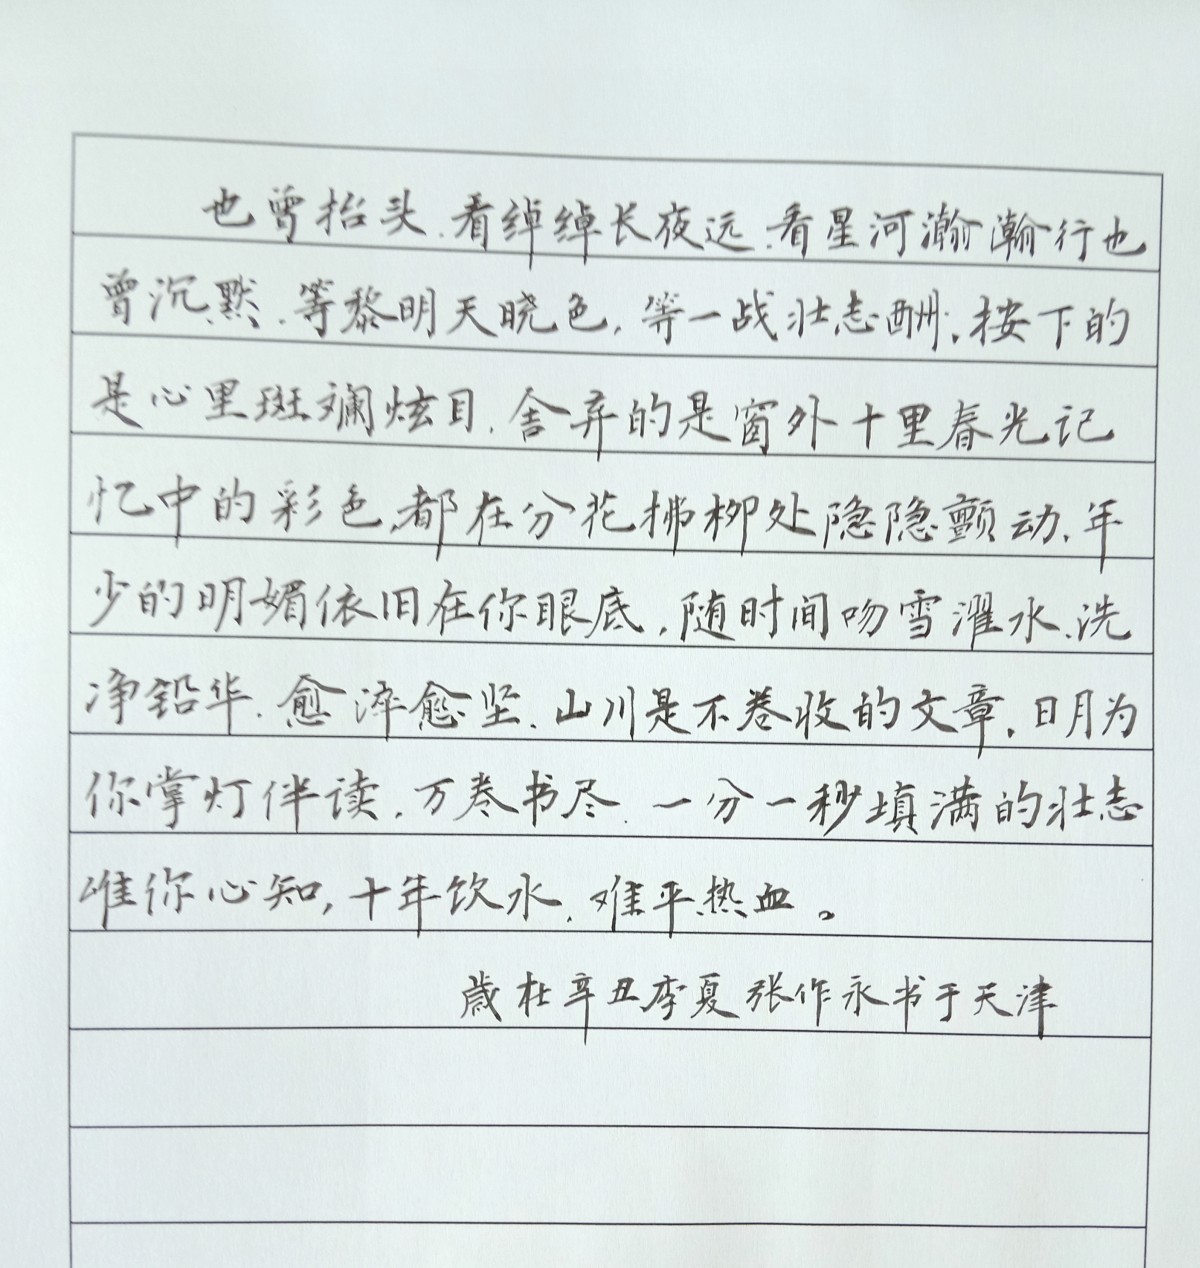 也曾抬头.看绰绰长夜远.看星河瀚瀚行也
曾沉默.等黎明天晓色,等一战壮志酬.按下的
是心里斑斓炫目.舍弃的是窗外十里春光记
忆中的彩色,都在分花拂柳处隐隐颤动.年
少的明媚依旧在你眼底,随时间吻雪濯水.洗
净铅华.愈淬愈坚.山川是不卷收的文章,日月为
你掌灯伴读,万卷书尽.一分一秒填满的壮志
唯你心知,十年饮水.难平热血。
歲杜辛丑季夏张作永书于天津